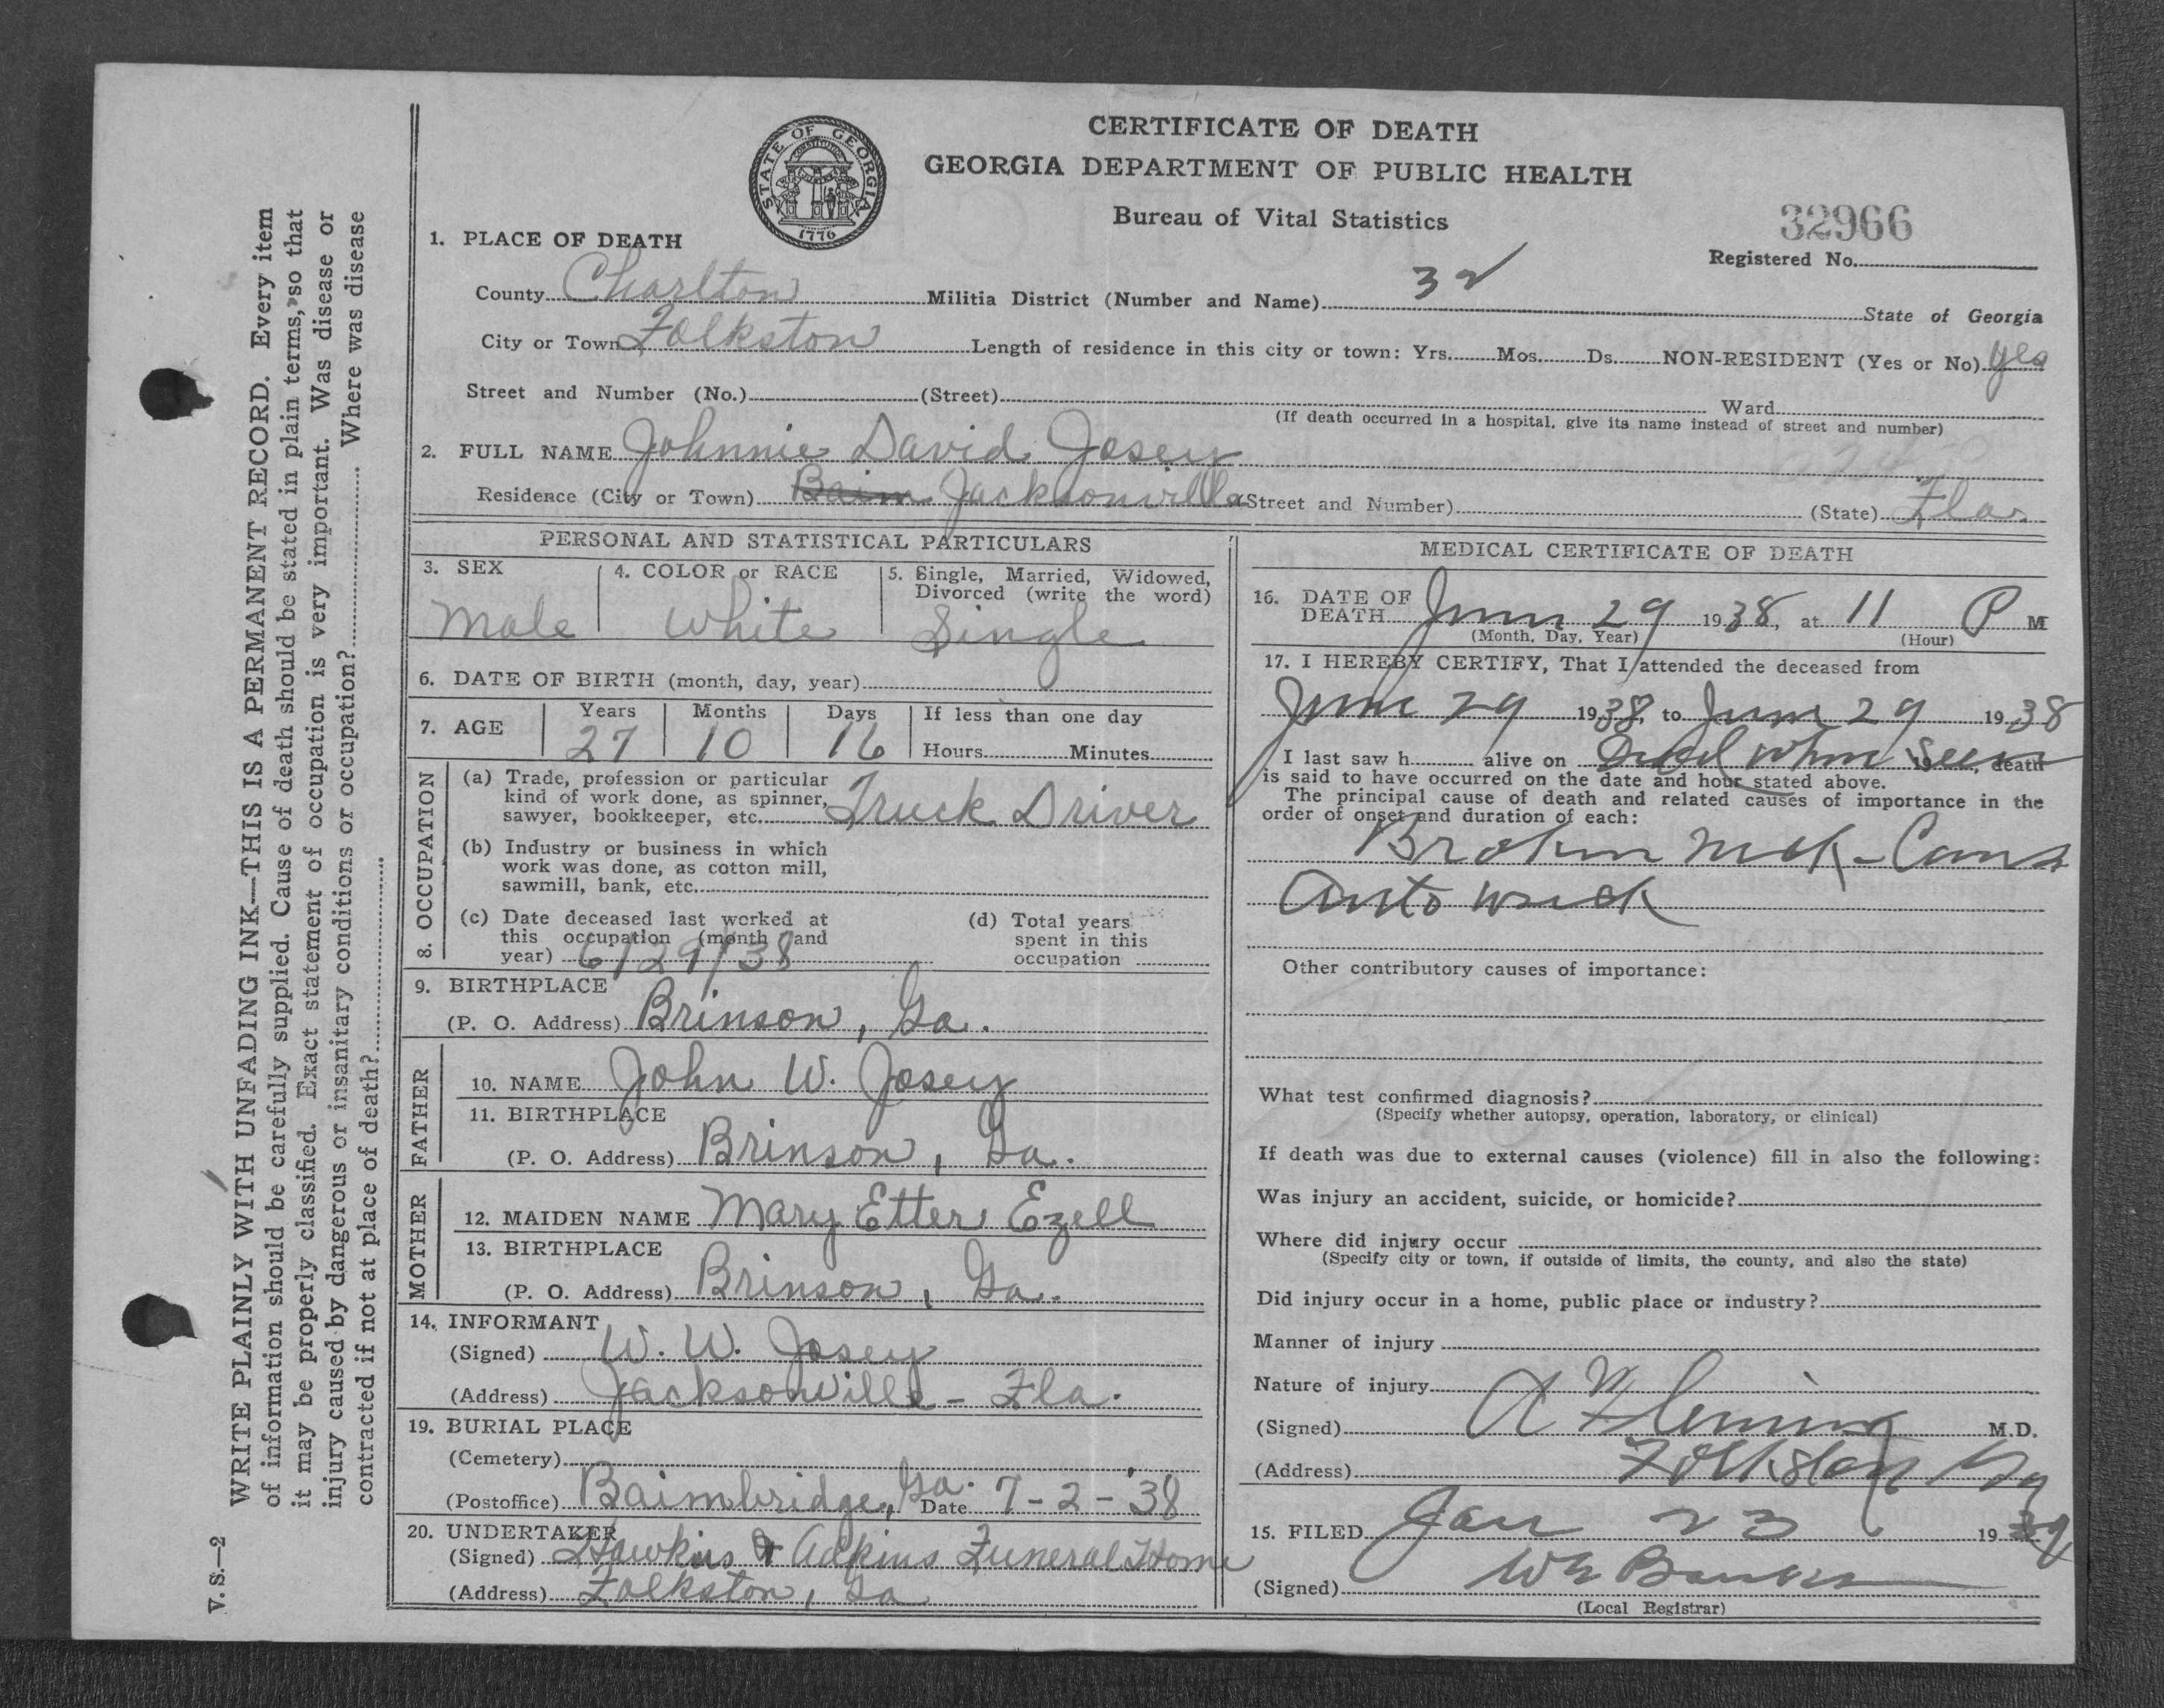 CERTIFICATE OF DEATH
GEORGIA DEPARTMENT OF PUBLIC HEALTH
Bureau of Vital Statistics
STATE OF GEORGIA
CONSTITUTION
1776
32966
Registered No.
1. PLACE OF DEATH
County Charlton Militia District (Number and Name) 32 State of Georgia
City or Town Folkston Length of residence in this city or town: Yrs. Mos. Ds. NON-RESIDENT (Yes or No) yes
Street and Number (No.) (Street) Ward
(If death occurred in a hospital, give its name instead of street and number)
2. FULL NAME Johnnie David Josey
Residence (City or Town) Bain Jacksonville Street and Number) (State) Fla.
PERSONAL AND STATISTICAL PARTICULARS
3. SEX
Male
4. COLOR or RACE
White
5. Single, Married, Widowed, Divorced (write the word)
Single
6. DATE OF BIRTH (month, day, year)
7. AGE
Years Months Days
27 10 16
If less than one day
Hours Minutes
8. OCCUPATION
(a) Trade, profession or particular
kind of work done, as spinner,
sawyer, bookkeeper, etc. Truck Driver
(b) Industry or business in which
work was done, as cotton mill,
sawmill, bank, etc.
(c) Date deceased last worked at
this occupation (month and
year) 6/29/38
(d) Total years
spent in this
occupation
9. BIRTHPLACE
(P. O. Address) Brinson, Ga.
FATHER
10. NAME John W. Josey
11. BIRTHPLACE
(P. O. Address) Brinson, Ga.
MOTHER
12. MAIDEN NAME Mary Etter Ezell
13. BIRTHPLACE
(P. O. Address) Brinson, Ga.
14. INFORMANT
(Signed) W. W. Josey
(Address) Jacksonville - Fla.
19. BURIAL PLACE
(Cemetery)
(Postoffice) Baimbridge, Ga. Date 7-2-'38
20. UNDERTAKER
(Signed) Hawkins & Adkins Funeral Home
(Address) Folkston, Ga
MEDICAL CERTIFICATE OF DEATH
16. DATE OF
DEATH June 29 1938, at 11 P M
(Month, Day, Year) (Hour)
17. I HEREBY CERTIFY, That I attended the deceased from
June 29 1938, to June 29 1938
I last saw h alive on Dead when seen 19 , death
is said to have occurred on the date and hour stated above.
The principal cause of death and related causes of importance in the
order of onset and duration of each:
Broken neck - Cause
auto wreck
Other contributory causes of importance:
What test confirmed diagnosis?
(Specify whether autopsy, operation, laboratory, or clinical)
If death was due to external causes (violence) fill in also the following:
Was injury an accident, suicide, or homicide?
Where did injury occur
(Specify city or town, if outside of limits, the county, and also the state)
Did injury occur in a home, public place or industry?
Manner of injury
Nature of injury
(Signed) Fleming M.D.
(Address) Folkston Ga
15. FILED Jan 23 1939
(Signed)
(Local Registrar)
WRITE PLAINLY WITH UNFADING INK—THIS IS A PERMANENT RECORD. Every item
of information should be carefully supplied. Cause of death should be stated in plain terms, so that
it may be properly classified. Exact statement of occupation is very important. Was disease or
injury caused by dangerous or insanitary conditions or occupation? Where was disease
contracted if not at place of death?
V. S.—2